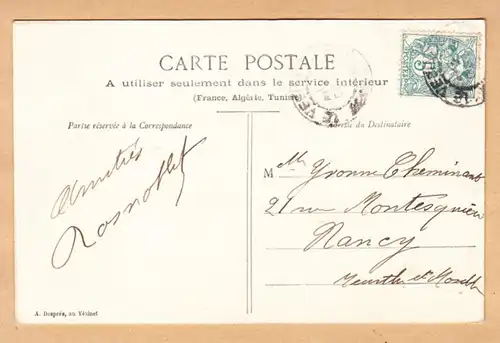 CARTE POSTALE
A utiliser seulement dans le service intérieur
(France, Algérie, Tunisie)
Partie réservée à la Correspondance
Adresse du Destinataire
Amitiés
M elle Yvonne Cheminant
21 rue Montesquieu
Nancy
Meurthe et Moselle
A. Després, au Vésinet